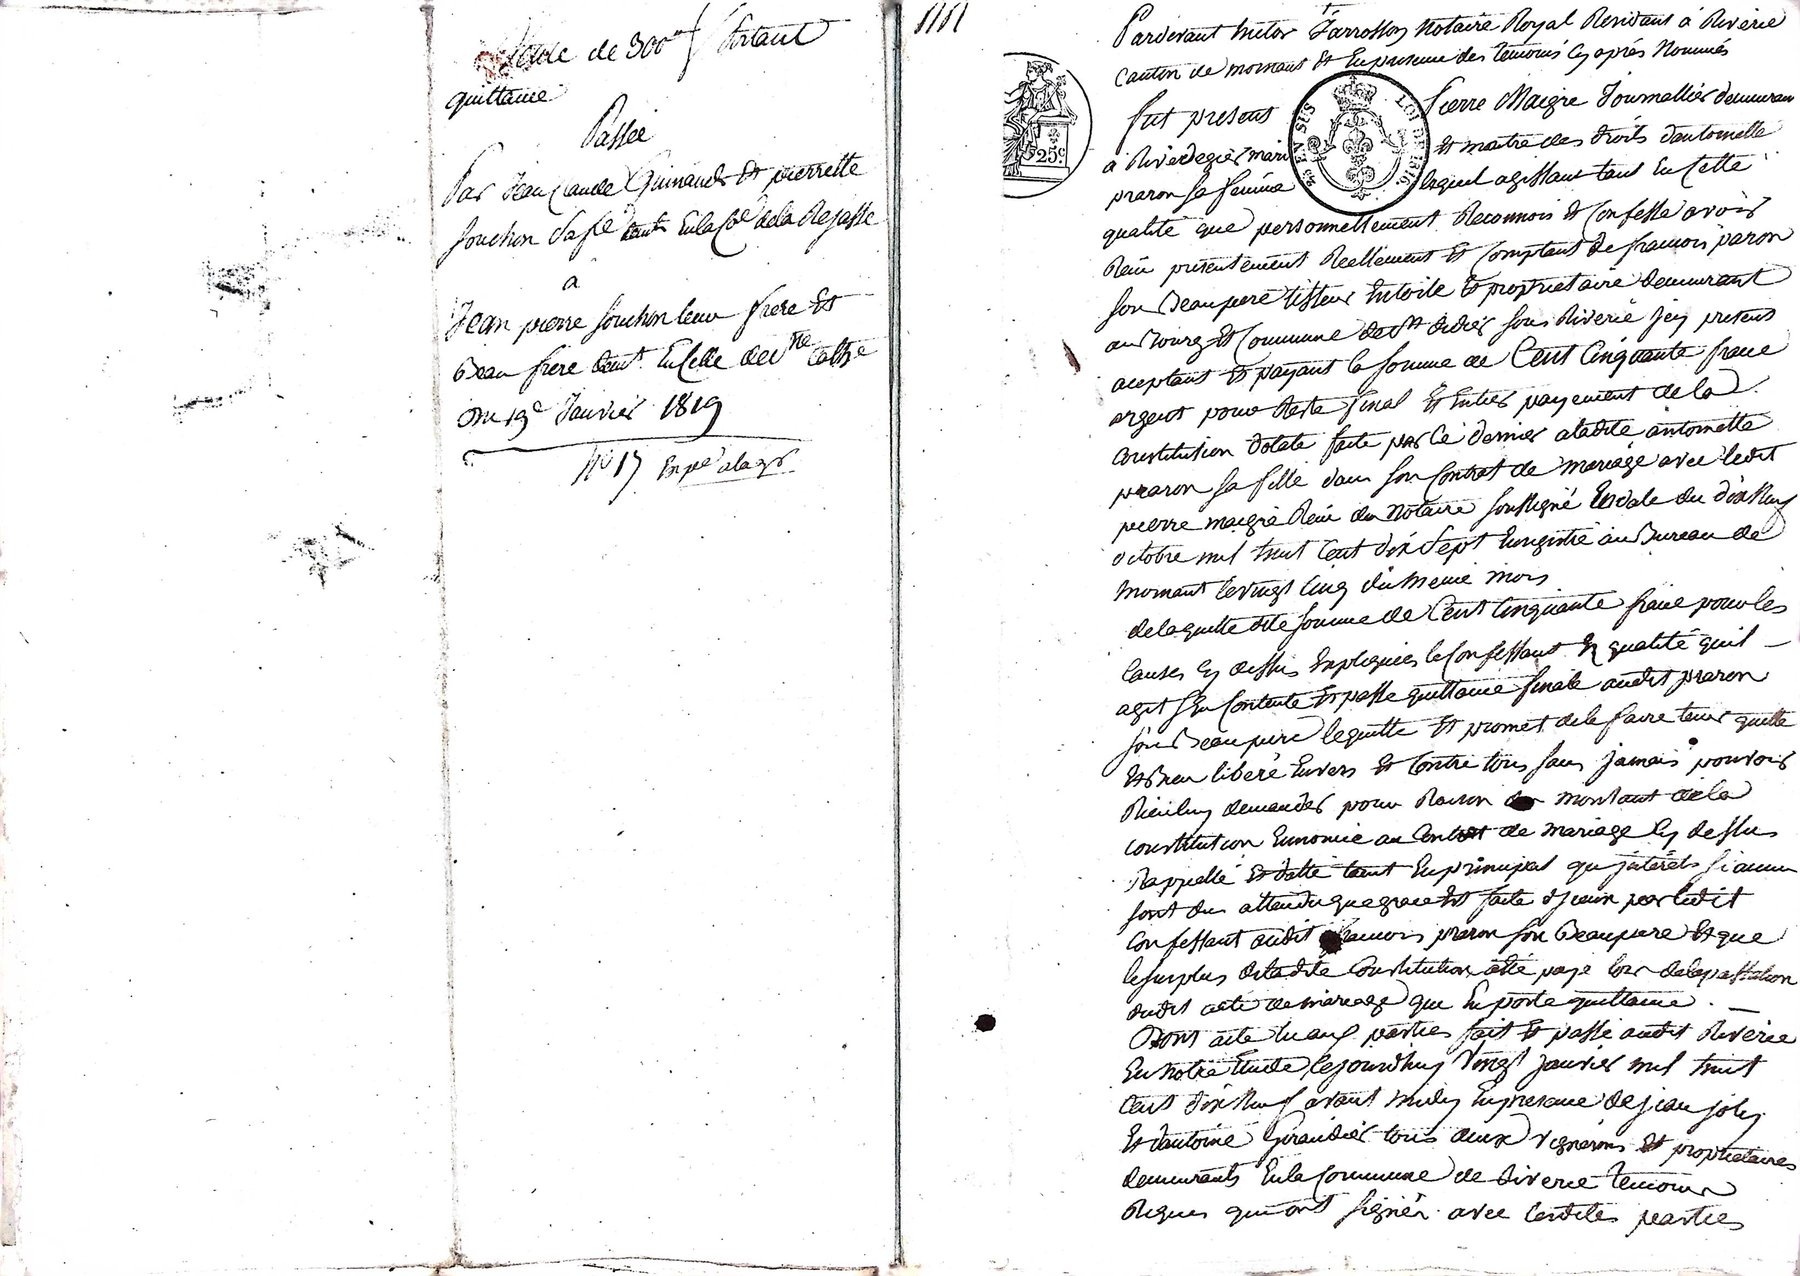 Vente de 300ᶠ portant
quittance
Passée
Par Jean Claude Guinand et pierrette
Souchon sa fe demt en la Cne de la Rejasse
a
Jean pierre Souchon leur frere et
Beau frere demt en celle de Ste Cathe
Du 19e Janvier 1819
No 17
25c
EN SUS
LOI DE 1816
Pardevant Victor Jarrosson Notaire Royal Residant à Riverie
canton de mornant et En presence des temoins cy après Nommés
fut present Pierre Maigre Journallier demeurant
à Rivedegier mari et maitre des droits dantoinette
praron sa femme lequel agissant tant En Cette
qualité que personnellement Reconnois et Confesse avoir
Reçu presentement Reellement et Comptant de francois praron
son Beaupere tisseur Entoile et proprietaire demeurant
au Bourg et Commune de St didier sous Riverie Jcy present
aceptant et payant la somme de Cent Cinquante franc
argent pour Reste final et Entier payement de la
Constitution dotale faite par Ce dernier aladite antoinette
praron sa fille dans son Contrat de mariage avec ledit
pierre maigre Recu du Notaire soussigné Endate du dix Neuf
octobre mil huit Cent dix Sept Enregistré au Bureau de
Mornant le vingt Cinq du meme mois
delaquelle dite somme de Cent Cinquante franc pour les
Causes cy dessus Expliquées le Confessant En qualité quil
agit sen Contente et passe quittance finale audit praron
son Beaupere lequitte et promet dele faire tenir quitte
et Bien liberé Envers et Contre tous sans jamais pouvoir
Rien luy demander pour Raison du montant dela
Constitution Enoncée au Contrat de mariage Cy dessus
Rappellé et datté tant En principal qu'jnterets si aucun
sont dus attendu que grace est faite d'jceux par ledit
Confessant audit francois praron son Beaupere et que
lesurplus deladite Constitution aété payé lors delapassation
dudit acte de mariage que En porte quittance.
Dont acte lu aux parties fait et passé audit Riverie
En Notre Etude Cejourdhuy Vingt janvier mil huit
Cent dix Neuf avant midy En presence de jean joly
et dantoine Giraudier tous deux vignerons et proprietaires
demeurants En la Commune de Riverie temoins
Requis qui ont signés avec lesdites parties